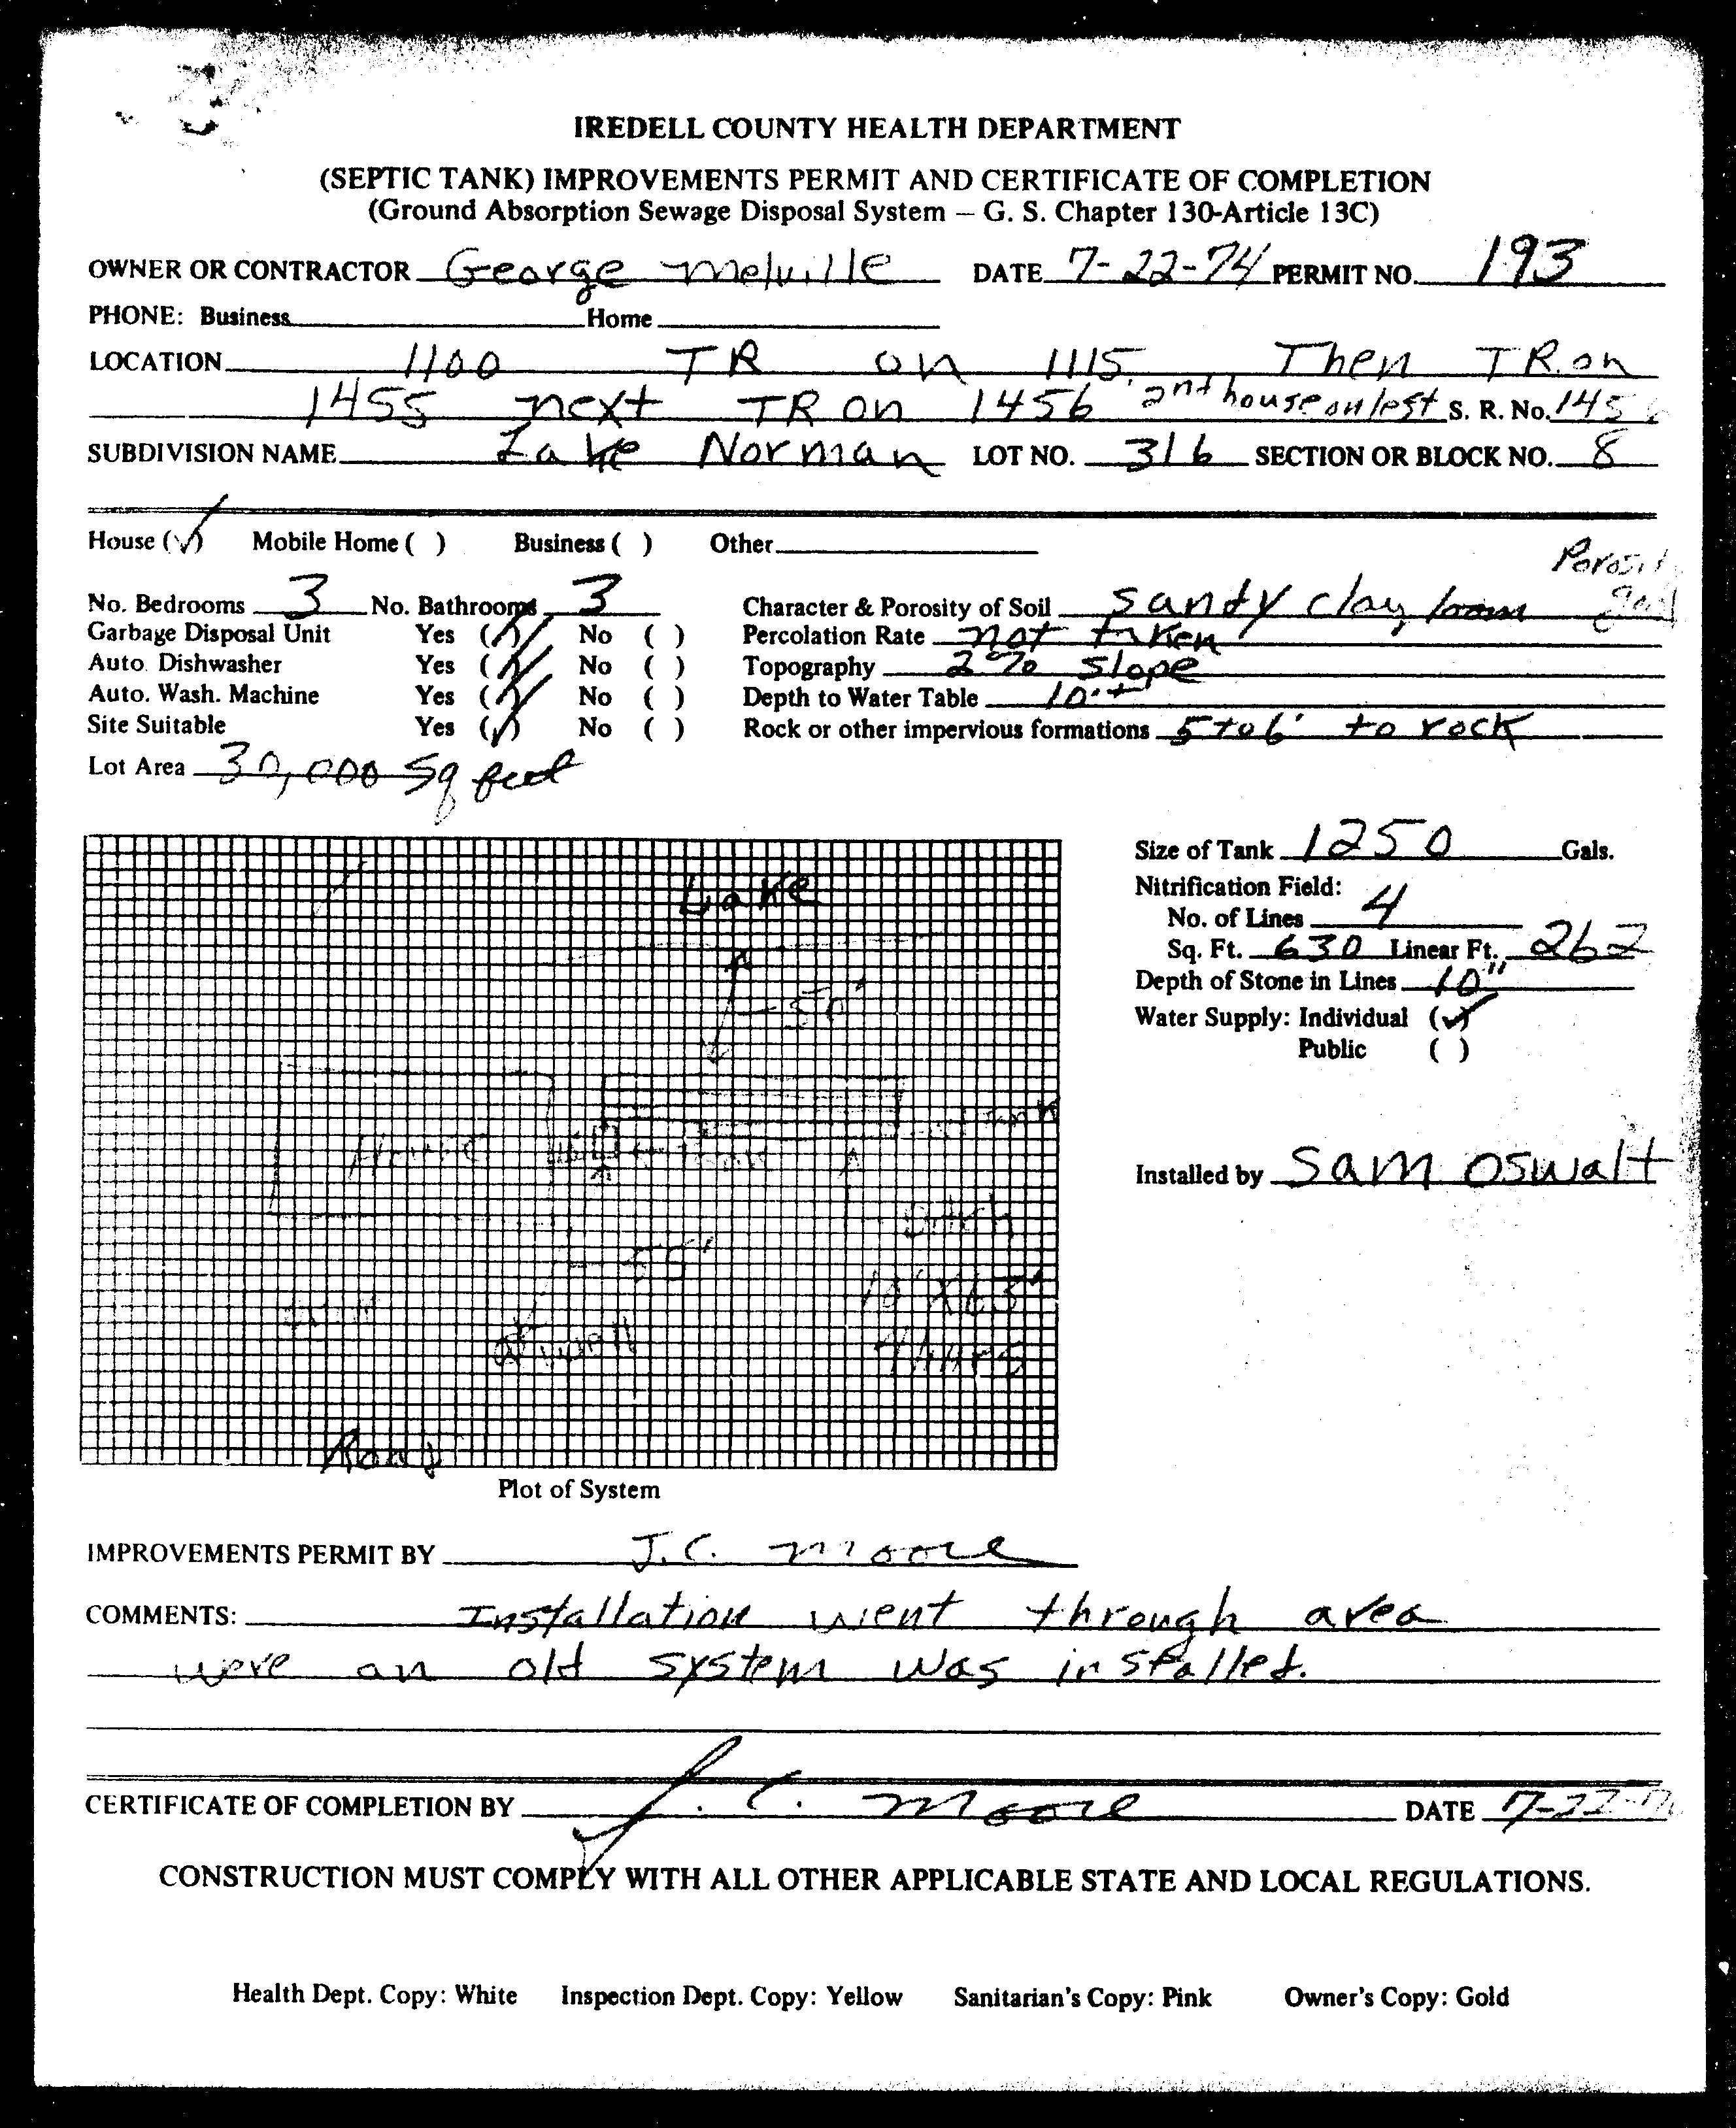 IREDELL COUNTY HEALTH DEPARTMENT
(SEPTIC TANK) IMPROVEMENTS PERMIT AND CERTIFICATE OF COMPLETION
(Ground Absorption Sewage Disposal System – G. S. Chapter 130-Article 13C)
OWNER OR CONTRACTOR George Melville DATE 7-22-74 PERMIT NO. 193
PHONE: Business Home
LOCATION 1100 TR on 1115 Then TR. on
1455 next TR on 1456 2nd house on lest S. R. No. 1456
SUBDIVISION NAME Lake Norman LOT NO. 316 SECTION OR BLOCK NO. 8
House (✓) Mobile Home ( ) Business ( ) Other
Porosity
No. Bedrooms 3 No. Bathrooms 3 Character & Porosity of Soil sandy clay loam good
Garbage Disposal Unit Yes (✓) No ( ) Percolation Rate not taken
Auto. Dishwasher Yes (✓) No ( ) Topography 2% slope
Auto. Wash. Machine Yes (✓) No ( ) Depth to Water Table 10'+
Site Suitable Yes (✓) No ( ) Rock or other impervious formations 5 to 6' to rock
Lot Area 30,000 Sq feet
Size of Tank 1250 Gals.
Nitrification Field:
No. of Lines 4
Sq. Ft. 630 Linear Ft. 262
Depth of Stone in Lines 10"
Water Supply: Individual (✓)
Public ( )
Installed by Sam Oswalt
Lake
50'
House
55'
Well
Road
Plot of System
IMPROVEMENTS PERMIT BY J.C. Moore
COMMENTS: Installation went through area
were an old system was installed.
CERTIFICATE OF COMPLETION BY J. C. Moore DATE 7-22-74
CONSTRUCTION MUST COMPLY WITH ALL OTHER APPLICABLE STATE AND LOCAL REGULATIONS.
Health Dept. Copy: White Inspection Dept. Copy: Yellow Sanitarian's Copy: Pink Owner's Copy: Gold